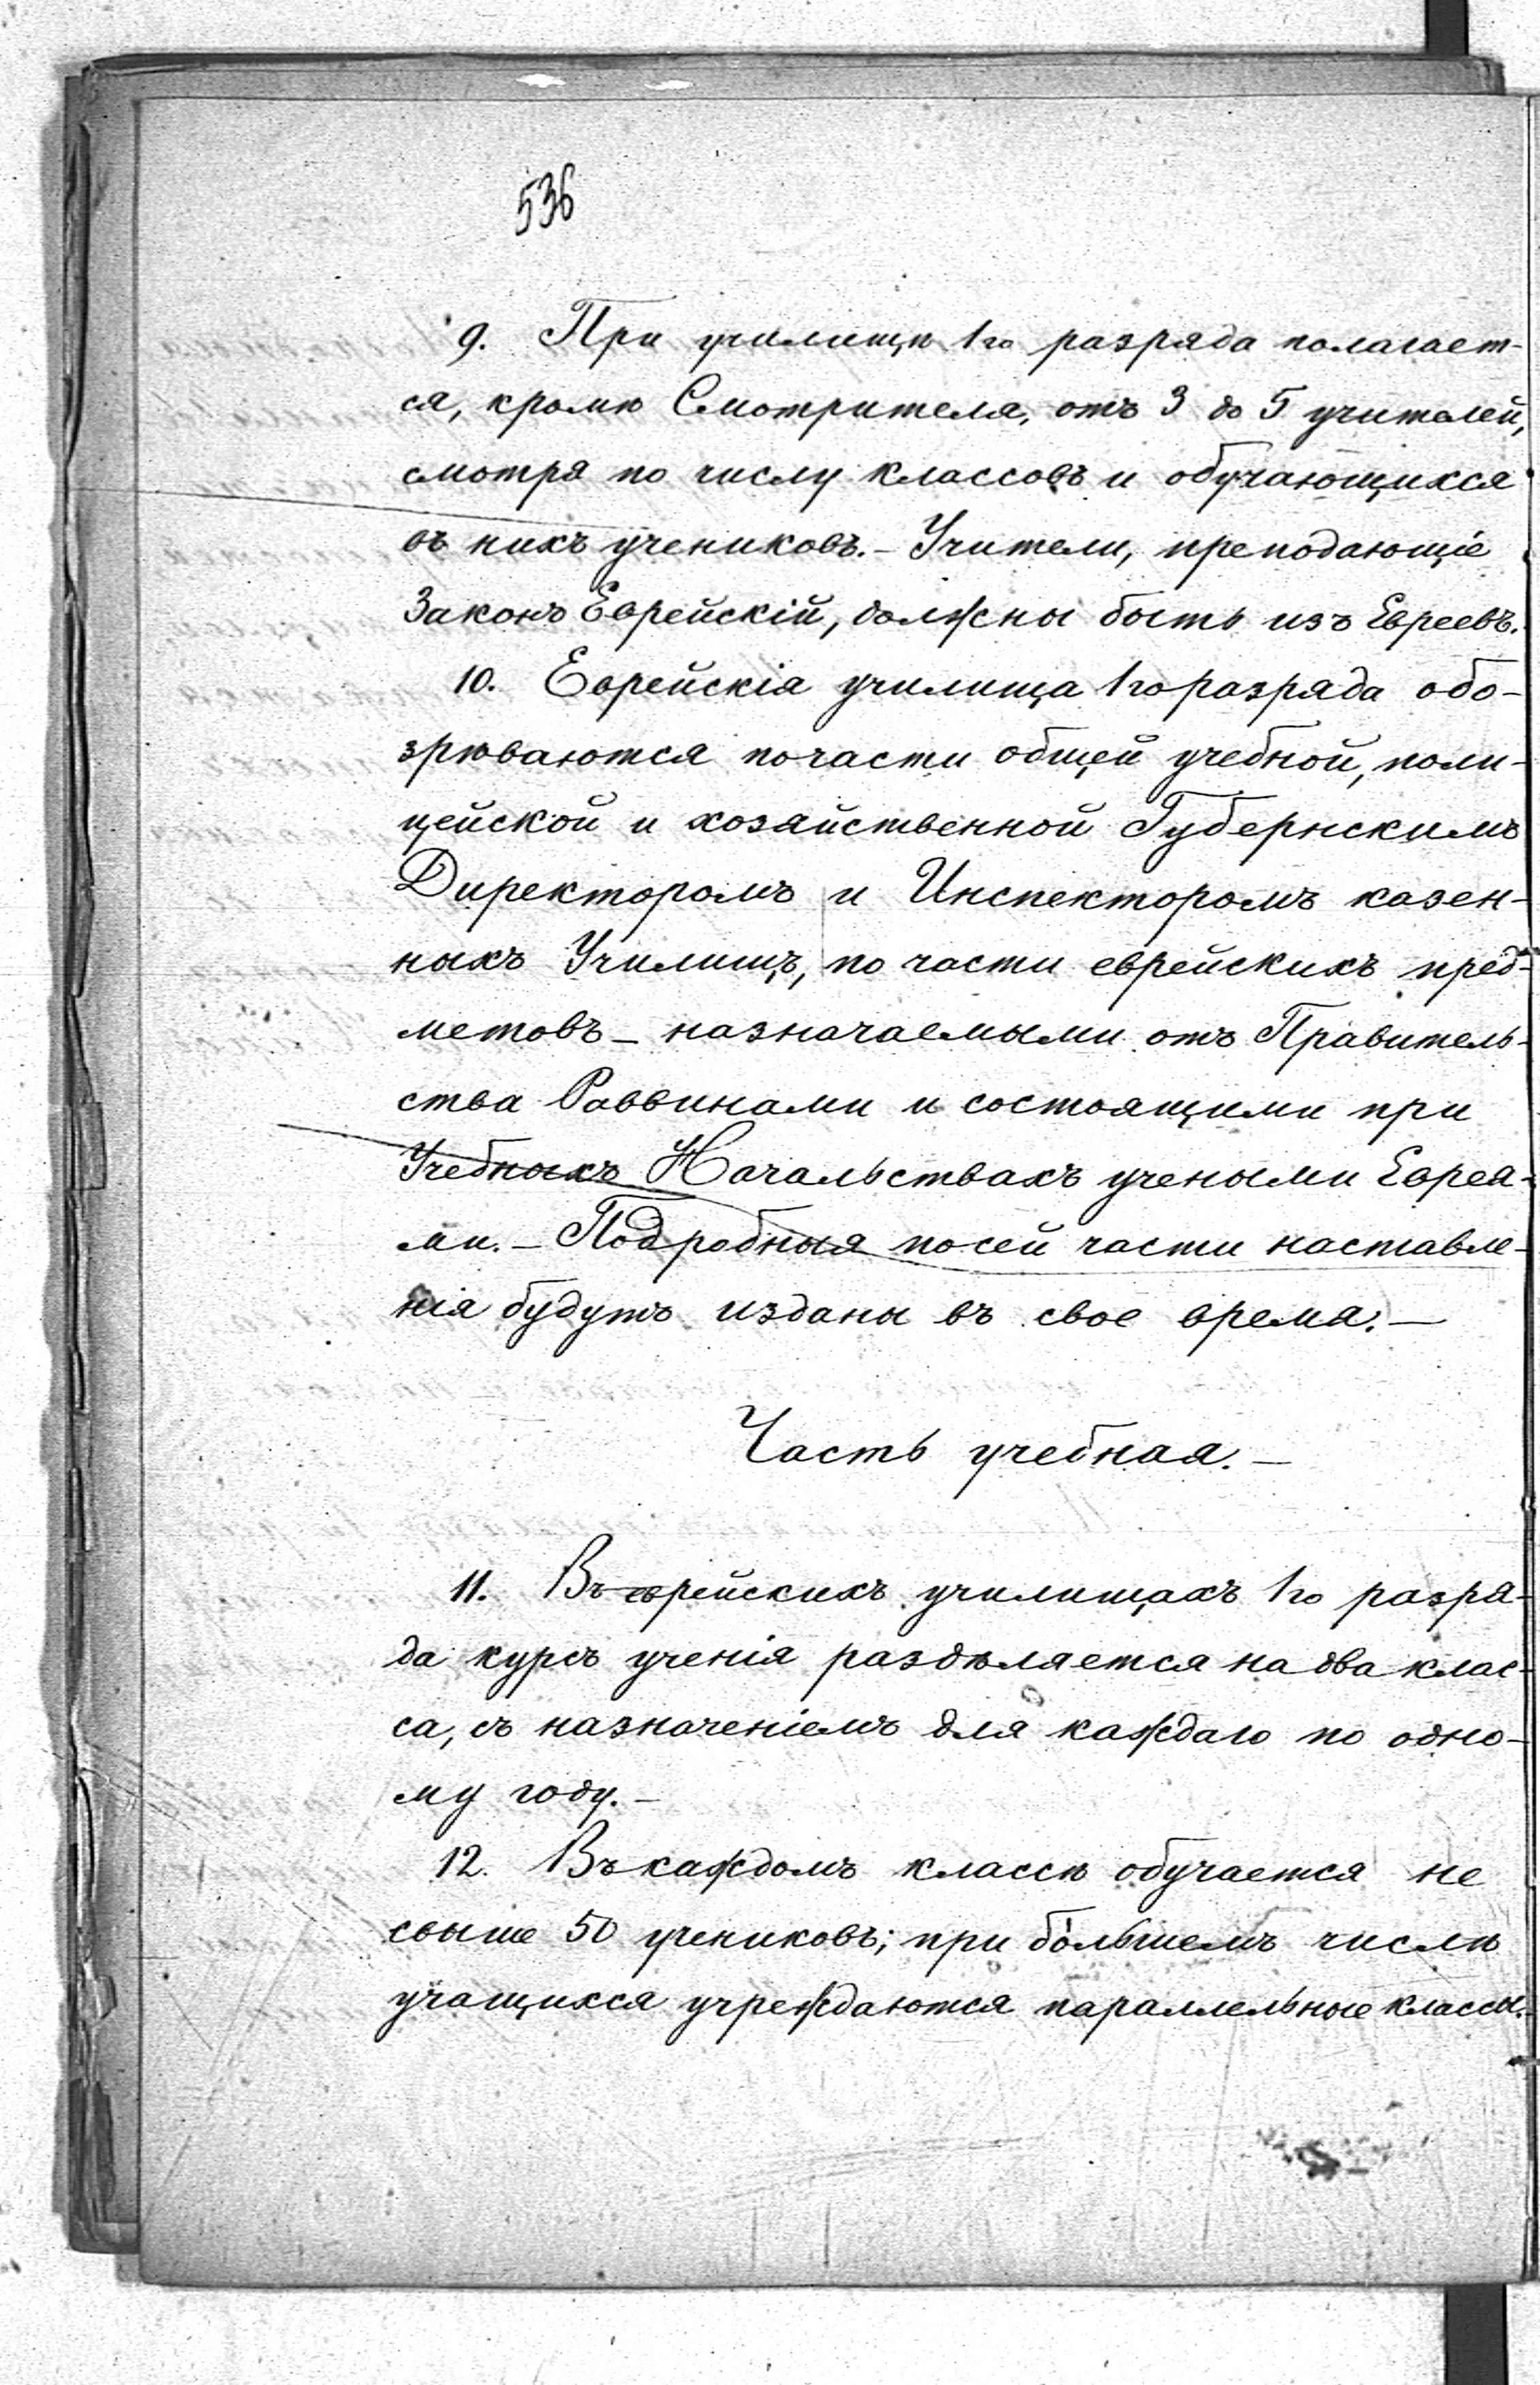 536
9. При училищѣ 1го разряда полагает-
ся, кромѣ Смотрителя, отъ 3 до 5 учителей,
смотря по числу классовъ и обучающихся
въ нихъ учениковъ. — Учители, преподающіе
Законъ Еврейскій, должны быть изъ Евреевъ.
10. Еврейскія училища 1го разряда обо-
зрѣваются по части общей учебной, поли-
цейской и хозяйственной Губернскимъ
Директоромъ и Инспекторомъ казен-
ныхъ Училищъ, по части еврейскихъ пред-
метовъ — назначаемыми отъ Правитель-
ства Раввинами и состоящими при
Учебныхъ Начальствахъ учеными Еврея-
ми. — Подробныя по сей части наставле-
нія будутъ изданы въ свое время. —
Часть учебная. —
11. Въ еврейскихъ училищахъ 1го разря-
да курсъ ученія раздѣляется на два клас-
са, съ назначеніемъ для каждаго по одно-
му году. —
12. Въ каждомъ классѣ обучается не
свыше 50 учениковъ; при бо́льшемъ числѣ
учащихся учреждаются параллельные классы.